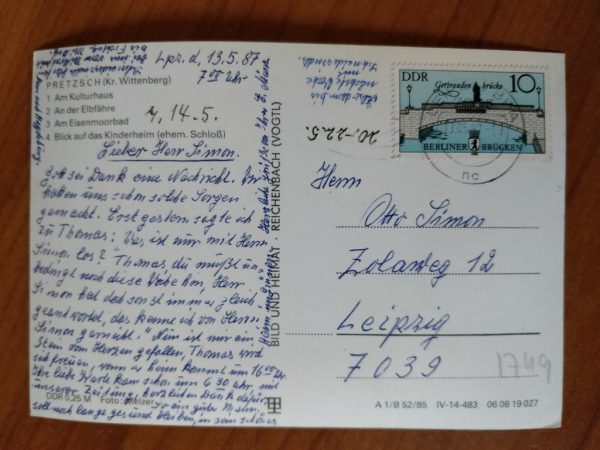 Lpz. d. 13.5.87
7 00 Uhr
PRETZSCH (Kr. Wittenberg)
1 Am Kulturhaus
2 An der Elbfähre
3 Am Eisenmoorbad
4 Blick auf das Kinderheim (ehem. Schloß)
14.5.
Lieber Herr Simon.
Gott sei Dank eine Nachricht. Wir
haben uns schon solche Sorgen
gemacht. Erst gestern sagte ich
zu Thomas: Was ist nur mit Herrn
Simon los? "Thomas du mußt un
bedingt noch diese Woche hin, Herr
Simon hat doch sonst immer gleich
geantwortet, das kenne ich von Herrn
Simon garnicht." Nun ist mir ein
Stein vom Herzen gefallen, Thomas wird
sich freuen, wenn er heim kommt um 16 00 Uhr
Ihre liebe Karte kam schon um 6 30 Uhr mit
unserer Zeitung, herzlichen Dank dafür
So ein guter Mensch
soll noch lange gesund bleiben, in sein schönes
DDR 0,25 M Foto:
BILD UND HEIMAT · REICHENBACH (VOGTL)
A 1/B 52/85 IV-14-483 06 08 19 027
20.-22.5.
DDR
Gertraudenbrücke
10
BERLINER BRÜCKEN
nc
Herrn
Otto Simon
Zolaweg 12
Leipzig
7039
1749